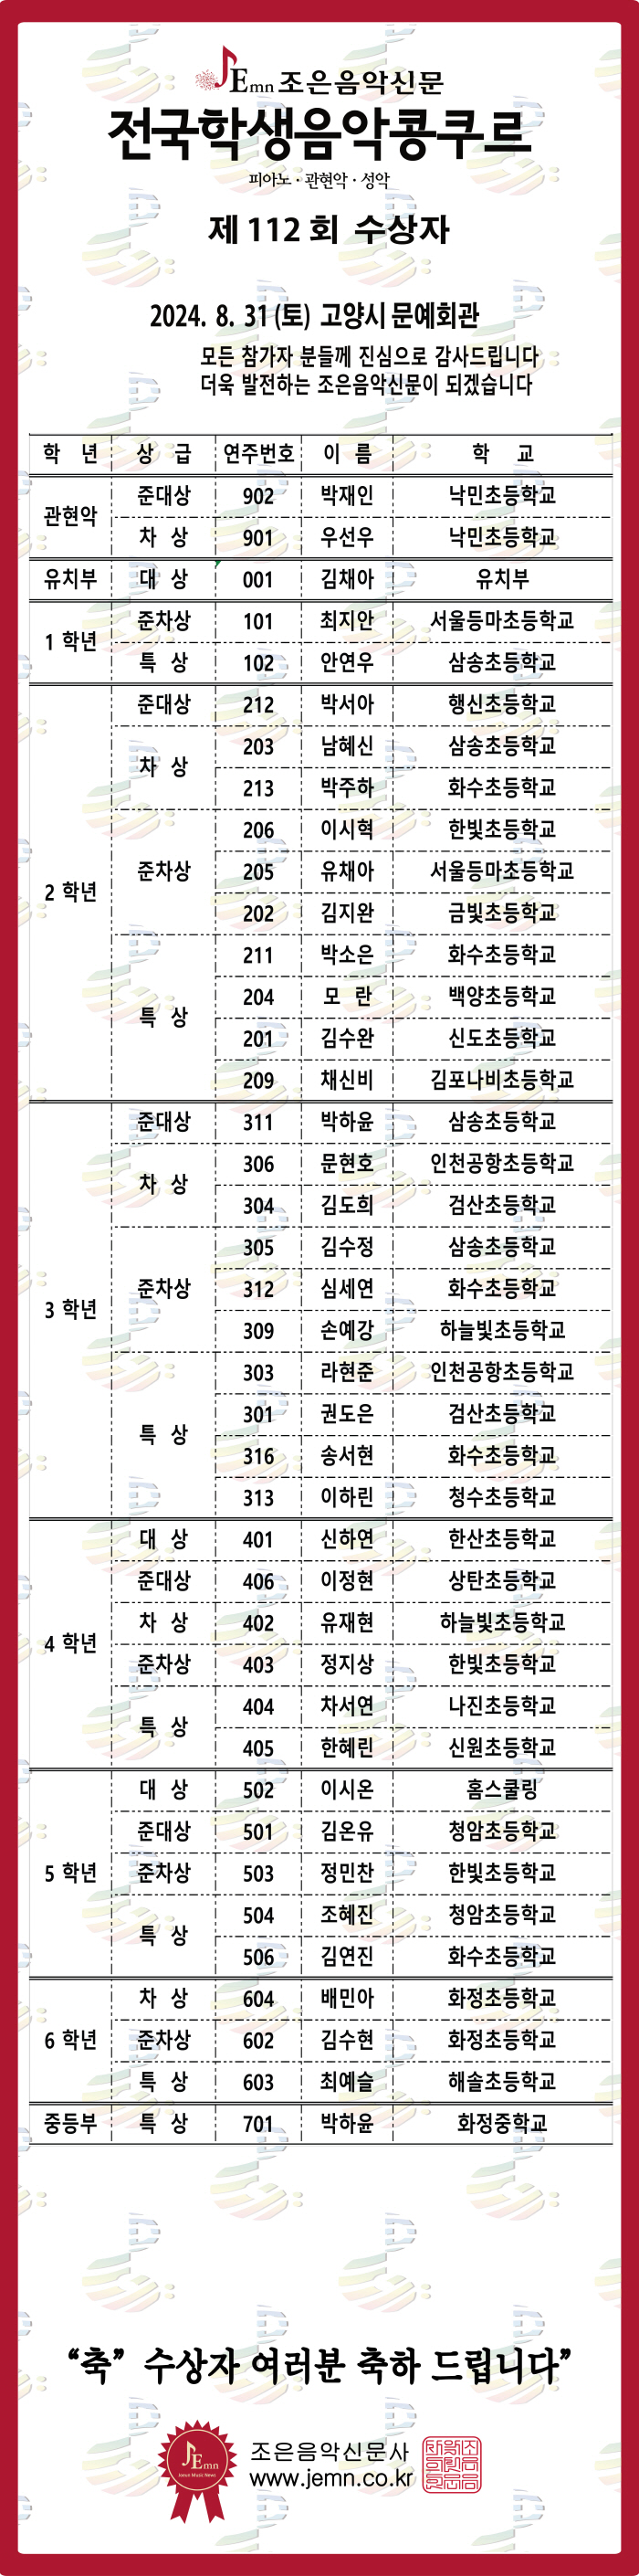 JEmn 조은음악신문
전국학생음악콩쿠르
피아노 · 관현악 · 성악
제 112 회 수상자
2024. 8. 31 (토) 고양시 문예회관
모든 참가자 분들께 진심으로 감사드립니다
더욱 발전하는 조은음악신문이 되겠습니다
학 년 상 급 연주번호 이 름 학 교
관현악 준대상 902 박재인 낙민초등학교
차 상 901 우선우 낙민초등학교
유치부 대 상 001 김채아 유치부
1 학년 준차상 101 최지안 서울등마초등학교
특 상 102 안연우 삼송초등학교
2 학년 준대상 212 박서아 행신초등학교
차 상 203 남혜신 삼송초등학교
213 박주하 화수초등학교
준차상 206 이시혁 한빛초등학교
205 유채아 서울등마초등학교
202 김지완 금빛초등학교
특 상 211 박소은 화수초등학교
204 모 란 백양초등학교
201 김수완 신도초등학교
209 채신비 김포나비초등학교
3 학년 준대상 311 박하윤 삼송초등학교
차 상 306 문현호 인천공항초등학교
304 김도희 검산초등학교
준차상 305 김수정 삼송초등학교
312 심세연 화수초등학교
309 손예강 하늘빛초등학교
특 상 303 라현준 인천공항초등학교
301 권도은 검산초등학교
316 송서현 화수초등학교
313 이하린 청수초등학교
4 학년 대 상 401 신하연 한산초등학교
준대상 406 이정현 상탄초등학교
차 상 402 유재현 하늘빛초등학교
준차상 403 정지상 한빛초등학교
특 상 404 차서연 나진초등학교
405 한혜린 신원초등학교
5 학년 대 상 502 이시온 홈스쿨링
준대상 501 김온유 청암초등학교
준차상 503 정민찬 한빛초등학교
특 상 504 조혜진 청암초등학교
506 김연진 화수초등학교
6 학년 차 상 604 배민아 화정초등학교
준차상 602 김수현 화정초등학교
특 상 603 최예슬 해솔초등학교
중등부 특 상 701 박하윤 화정중학교
“축” 수상자 여러분 축하 드립니다”
JEmn
Joeun Music News
조은음악신문사
www.jemn.co.kr